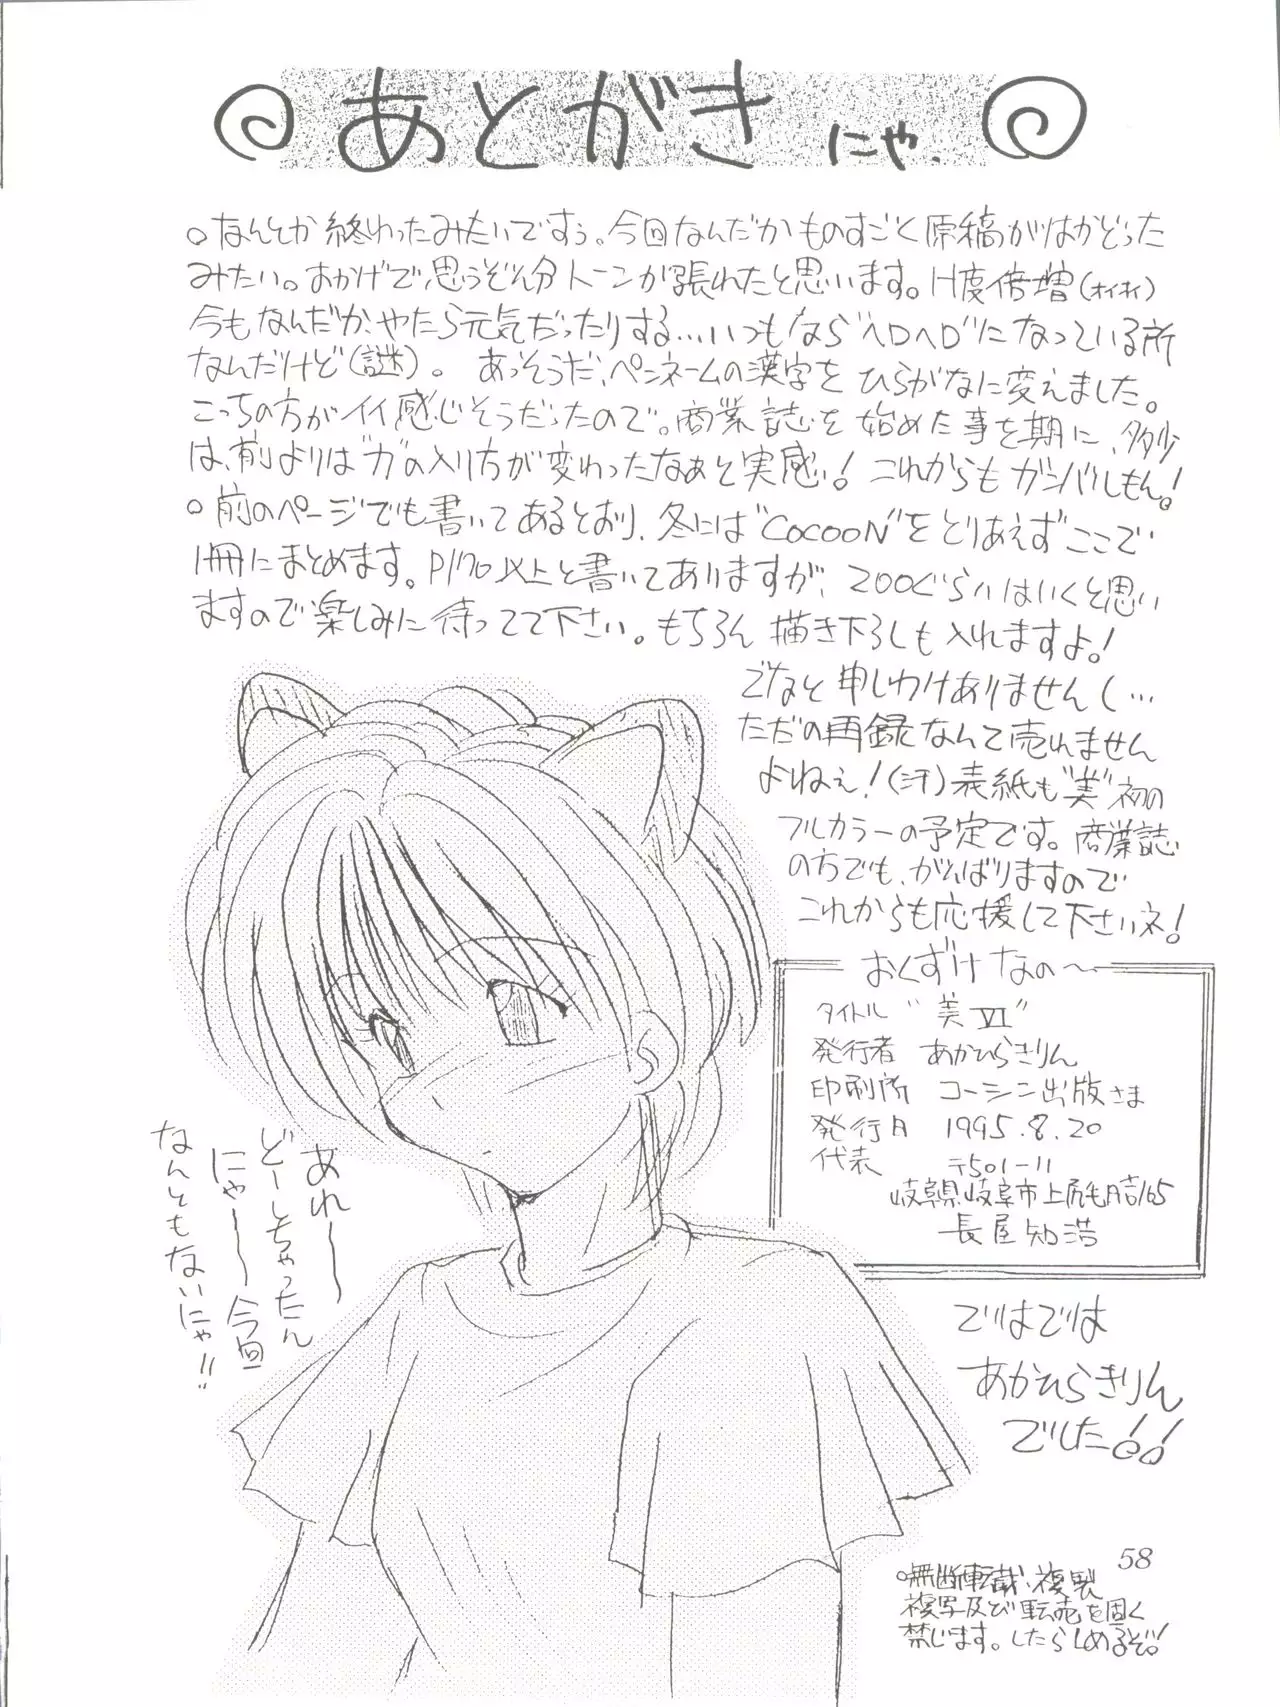 あとがき にゃ.
○なんとか終わったみたいですぅ。今回なんだかものすごく原稿がはかどった
みたい。おかげで思うぞん分トーンが張れたと思います。H度倍増(オイオイ)
今もなんだか、やたら元気だったりする…いつもなら"ヘロヘロ"になっている所
なんだけど(謎)。 あっそうだ、ペンネームの漢字をひらがなに変えました。
こっちの方がイイ感じそうだったので。商業誌を始めた事を期に、多少
は、前よりは"力"の入り方が変わったなぁと実感！これからもガンバルしもん。！
○前のページでも書いてあるとおり、冬には"COCOON"をとりあえずここで
1冊にまとめます。P170以上と書いてありますが、200ぐらいはいくと思い
ますので楽しみに待ってて下さい。もちろん描き下ろしも入れますよ！
でなと申しわけありませんし…
ただの再録なんて売れません
よねぇ！(汗)表紙も"美"初の
フルカラーの予定です。商業誌
の方でも、がんばりますので
これからも応援して下さいネ！
おくずけなの〜
タイトル "美VI"
発行者 あかひらきりん
印刷所 コーシン出版さま
発行日 1995.8.20
代表 〒501-11
岐阜県岐阜市上尻毛日吉165
長屋知浩
あれ——
どーしちゃったん
にゃ——今回
なんともないにゃ!!
ではでは
あかひらきりん
でした！！
58
○無断転載、複製
複写及び転売を固く
禁じます。したらしめるぞ！